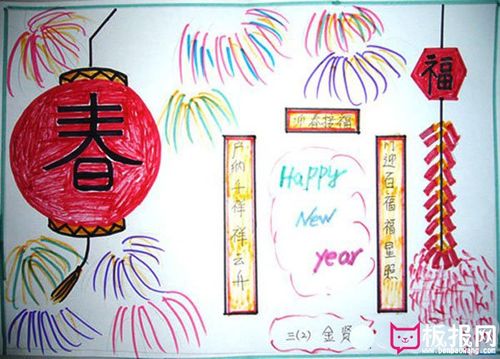 春
福
迎春接福
门迎百福福星照
户纳千祥祥云升
Happy
New
year
三(2) 金贤
板报网
www.banbaowang.com